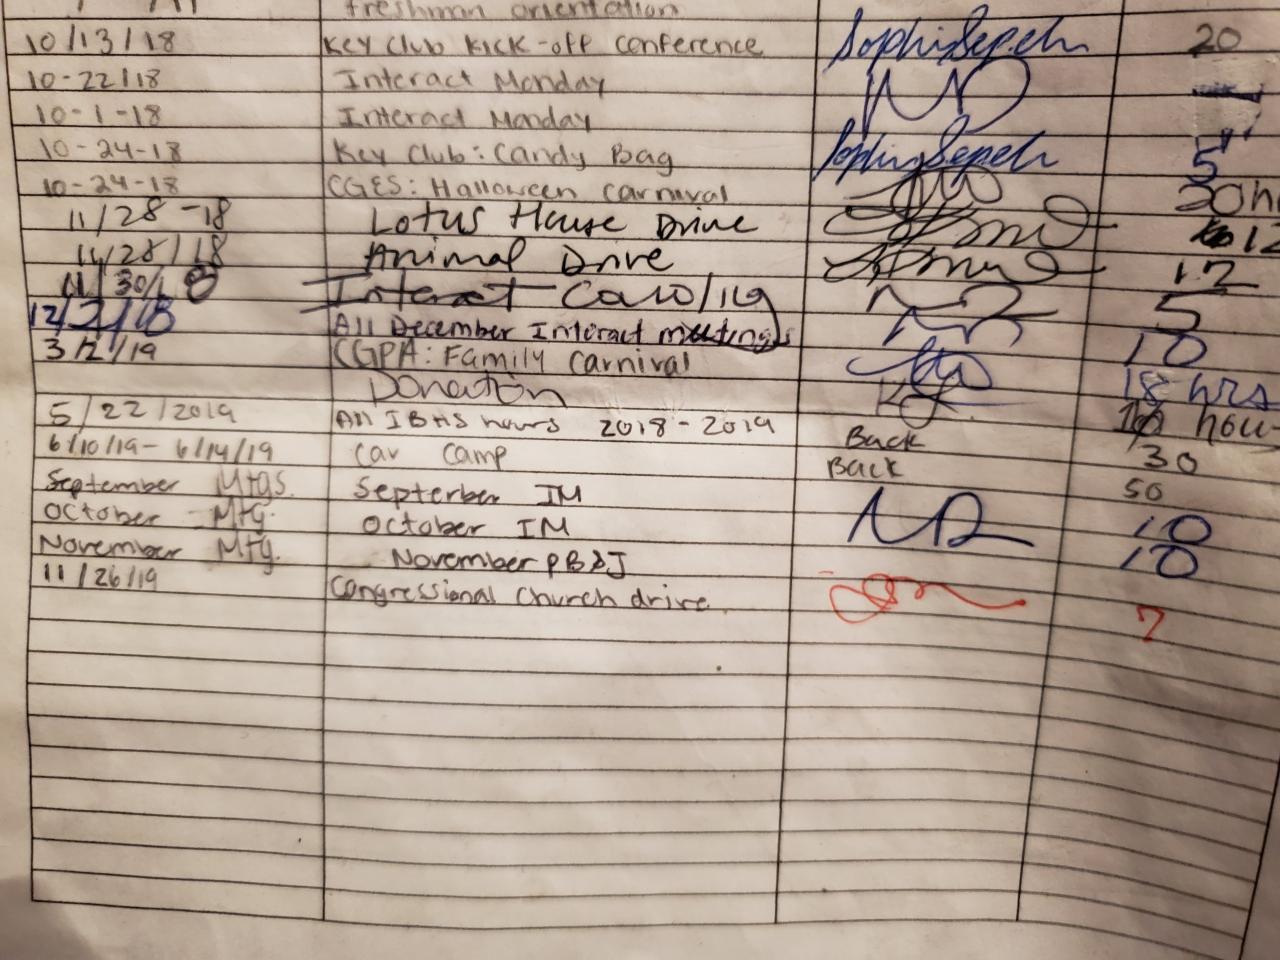 freshman orientation
10/13/18 Key Club Kick-off conference Sophia Sepeh 20
10-22/18 Interact Monday
10-1-18 Interact Monday
10-24-18 Key Club: Candy Bag Sophia Sepeh 5
10-24-18 CGES: Halloween carnival 30
11/28-18 Lotus House Drive 12
11/28/18 Animal Drive 12
11/30/18 Interact 5
12/2/18 All December Interact meetings 10
3/2/19 CGPA: Family carnival 18 hrs
Donation
5/22/2019 All IBHS hours 2018-2019 Back
6/10/19-6/14/19 Cav Camp Back 30
September Mtgs. Septerber IM 50
October Mtg. October IM 10
November Mtg. November PB&J 10
11/26/19 Congressional Church drive 7